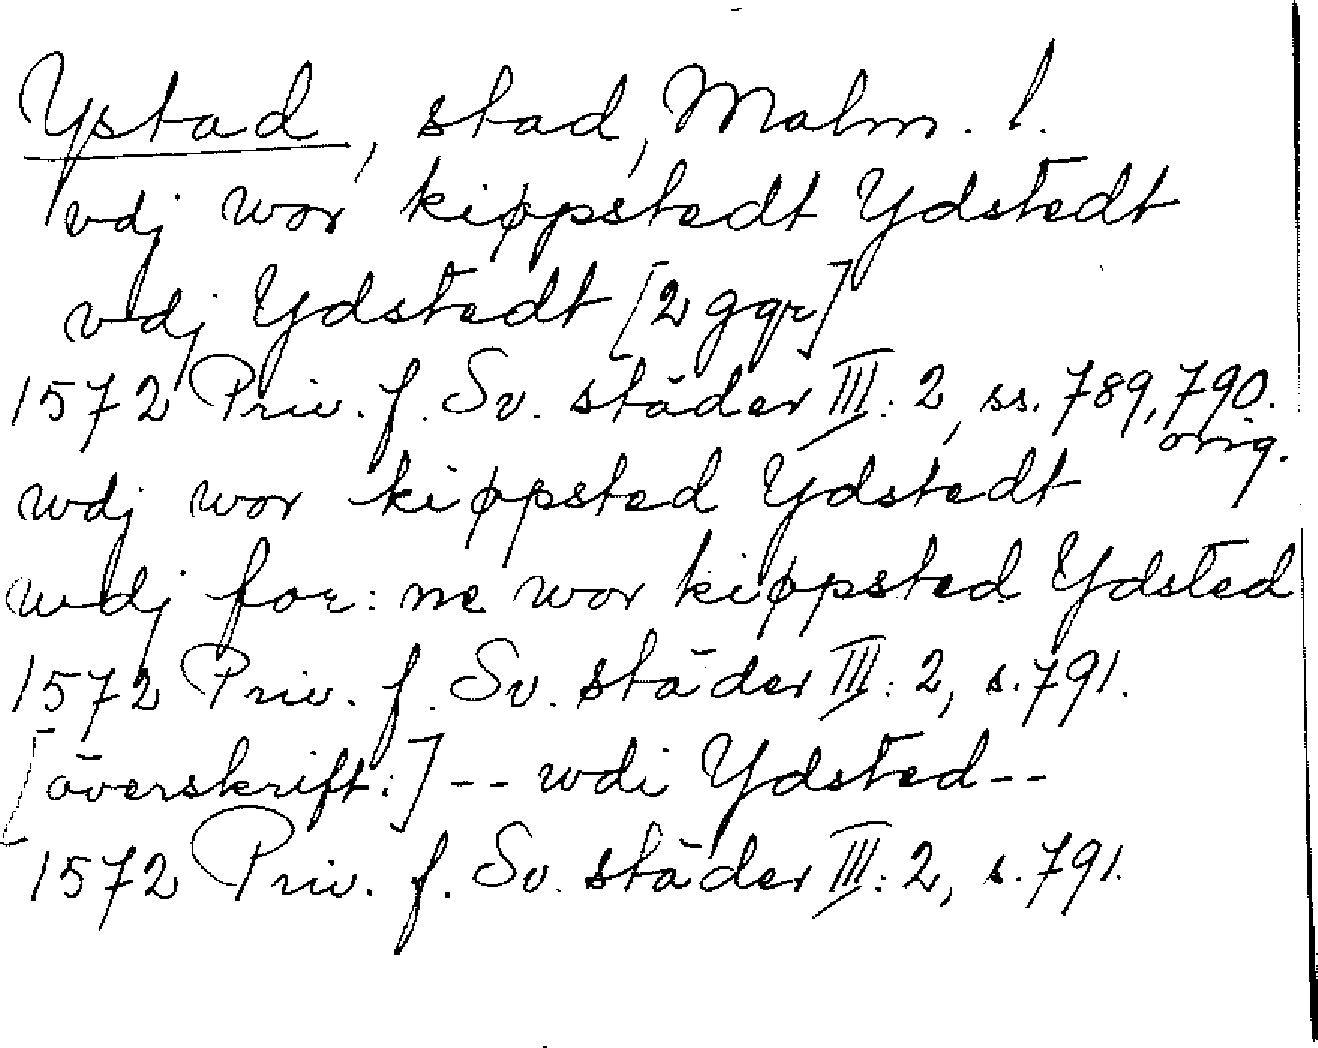 Ystad, stad, Malm. l.
vdj wor kiøpstedt Ydstedt
vdj Ydstedt [2 ggr]
1572 Priv. f. Sv. städer III: 2, ss. 789, 790.
orig.
wdj wor kiøpsted Ydstedt
wdj for: ne wor kiøpsted Ydsted
1572 Priv. f. Sv. städer III: 2, s. 791.
[överskrift:] -- wdi Ydsted --
1572 Priv. f. Sv. städer III: 2, s. 791.